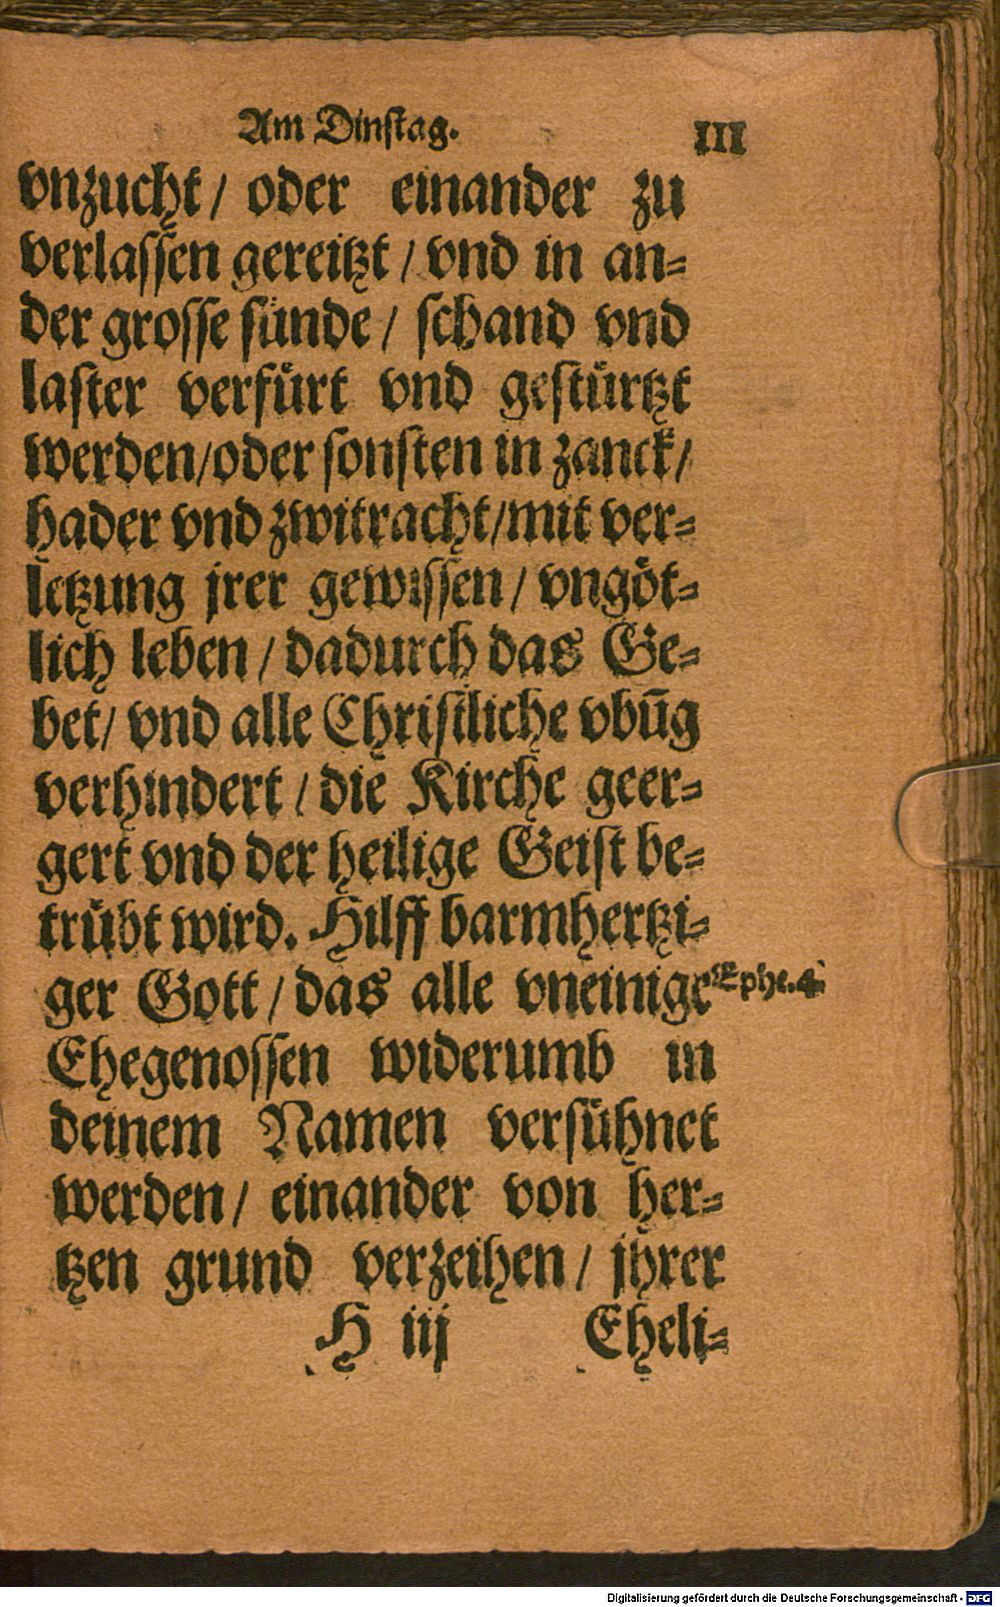 Am Dinstag. 111
vnzucht / oder einander zu
verlassen gereitzt / vnd in an-
der grosse sünde / schand vnd
laster verfürt vnd gestürtzt
werden/oder sonsten in zanck/
hader vnd zwitracht/mit ver-
letzung jrer gewissen / vngöt-
lich leben / dadurch das Ge-
bet/ vnd alle Christliche vbūg
verhindert / die Kirche geer-
gert vnd der heilige Geist be-
trübt wird. Hilff barmhertzi-
ger Gott / das alle vneinige Ephe. 4.
Ehegenossen widerumb in
deinem Namen versühnet
werden / einander von her-
tzen grund verzeihen / jhrer
H iij Eheli-
Digitalisierung gefördert durch die Deutsche Forschungsgemeinschaft - DFG